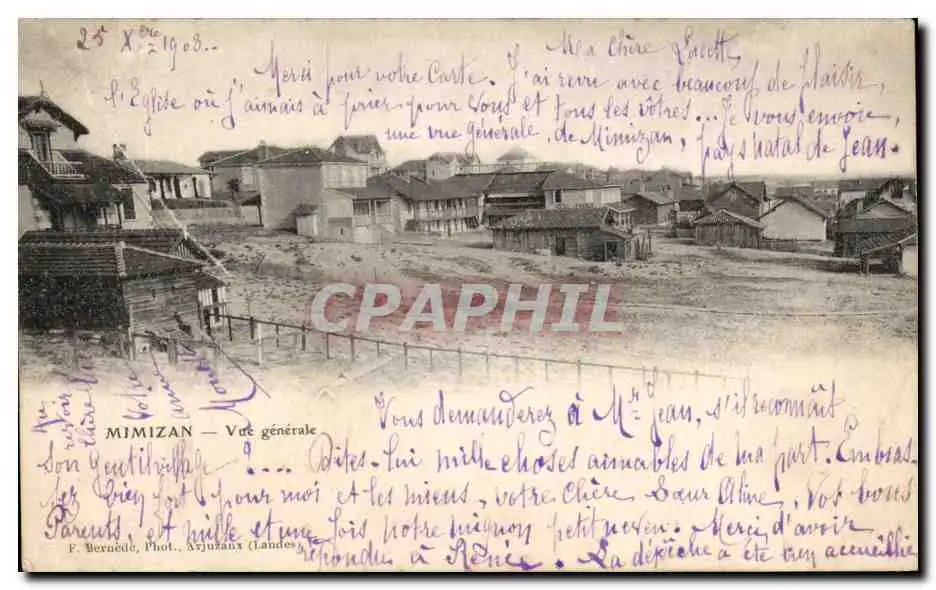 25 Xbre 1908..
Ma Chère Lucette,
Merci pour votre Carte. J'ai revu avec beaucoup de plaisir,
l'Église où j'aimais à prier pour vous et tous les vôtres... Je vous envoie,
une vue générale de Mimizan, pays natal de Jean.
CPAPHIL
Au revoir chère
Votre
MIMIZAN — Vue générale
Vous demanderez à Mr Jean, s'il reconnaît
son gentil village ?.... Dites-lui mille choses aimables de ma part. Embras-
sez bien fort pour moi et les miens, votre chère Soeur Aline, vos bons
Parents, et mille et une fois notre mignon petit neveu. Merci d'avoir
F. Bernède, Phot., Arjuzanx (Landes)
répondu à Renée. La dépêche a été bien accueillie